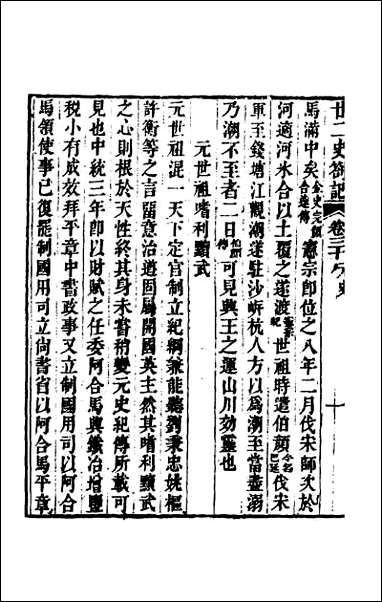 廿二史劄記 卷三十 元史 十
馬滿中矣金史完顏合達傳憲宗即位之八年二月伐宋師次於
河適河冰合以土覆之遂渡憲宗紀世祖時遣伯顏今名巴延伐宋
軍至錢塘江觀潮遂駐沙岍杭人方以為潮至當盡溺
乃潮不至者二日伯顏傳可見興王之運山川効靈也
元世祖嗜利黷武
元世祖混一天下定官制立紀綱兼能聽劉秉忠姚樞
許衡等之言留意治道固屬開國英主然其嗜利黷武
之心則根於天性終其身未嘗稍變元史紀傳所載可
見也中統三年卽以財賦之任委阿合馬興鐵冶增鹽
稅小有成效拜平章中書政事又立制國用司以阿合
馬領使事已復罷制國用司立尚書省以阿合馬平章